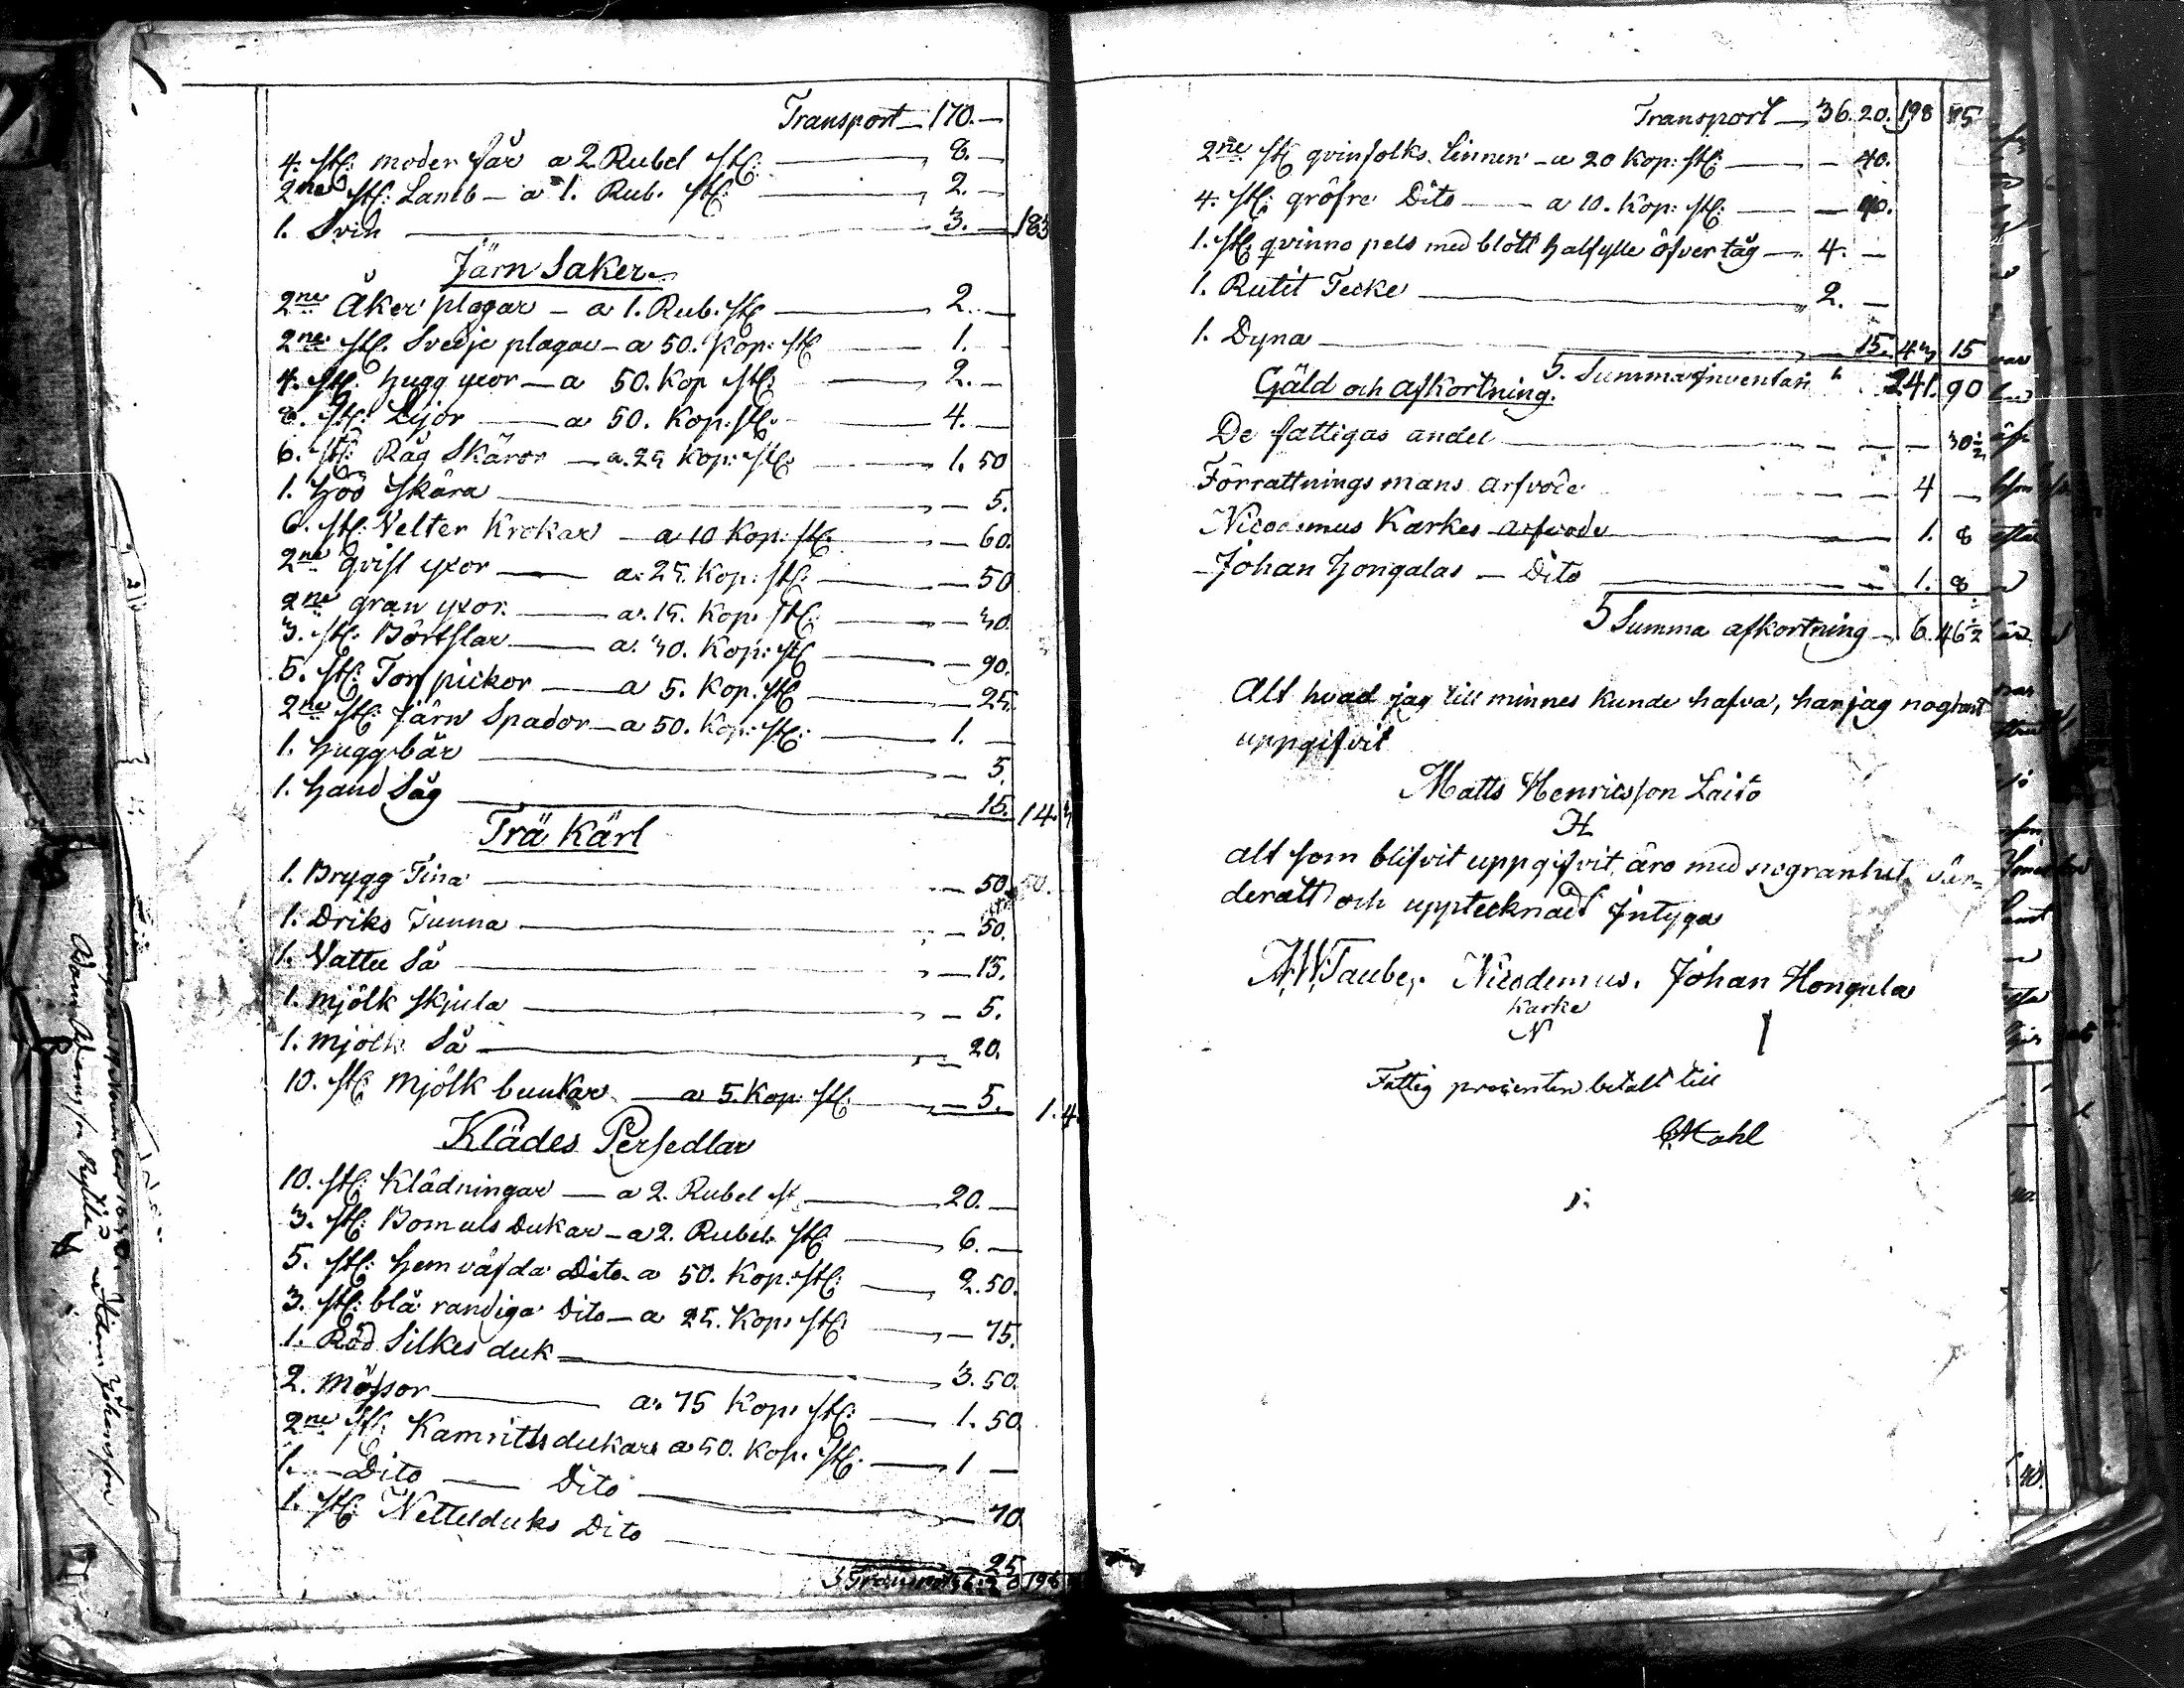 Transport — 170. —
4. st: moder får a 2 Rubel st: — 8. —
2ne st: Lamb — a 1. Rub. st: — 2. —
1. Svin — 3. — 183
Järn Saker
2ne Åker plogar — a 1. Rub. st — 2. —
2ne st. Svedje plogar — a 50. Kop: st — 1. —
4. st: hugg yxor — a 50. Kop st: — 2. —
8. st: Lijor — a 50. Kop: st: — 4. —
6. st: Råg Skäror — a. 25 Kop: st: — 1. 50
1. höö skära — 5.
6. st: Nelter Krokar — a 10 Kop: st: — 60.
2ne qvist yxor — a. 25. Kop: st: — 50
2ne gran yxor — a. 15. Kop: st: — 30.
3. st: Börtslar — a. 30. Kop: st — 90.
5. st: Torf pickor — a 5. Kop. st — 25.
2ne st: järn Spador — a 50. Kop: st: — 1. —
1. huggbår — 5.
1. hand Såg — 15. 14.
Trä Kärl
1. Brygg Tina — 50.
1. Driks Tunna — 50.
1. Vattu Så — 15.
1. mjölk skjula — 5.
1. mjölk Så — 20.
10. st: mjölk bunkar — a 5. Kop: st — 5. 1. 4
Klädes Persedlar
10. st: Klädningar — a 2. Rubel st — 20. —
3. st: Bomuls dukar — a 2. Rubel. st — 6. —
5. st: hemväfda Dito — a 50. Kop: st: — 2. 50.
3. st: blå randiga Dito — a 25. Kop: st — 75.
1. Röd Silkes duk — 3. 50.
2. mössor — a. 75 Kop: st: — 1. 50.
2ne st: Kamritts dukar a 50. Kop. st. — 1 —
1. — Dito — Dito — 70.
1. st: Nettelduks Dito — 25
Transport 36. 20 198
Transport — 36. 20. 198 75
2ne st qvinfolks Linnen — a 20 Kop: st: — 40.
4. st: gröfre Dito — a 10. Kop: st: — 40.
1. st: qvinno pels med blött halfylle öfvertåg — 4. —
1. Rutit Tecke — 2. —
1. Dyna — 15. 43 15
S. Summa Inventari 241. 90
Gäld och afkortning.
De fattigas andel — 30 1/2
Förrättnings mans arfvode — 4 —
Nicodemus Karkes arfvode — 1. 8
Johan Hongalas — Dito — 1. 8
S Summa afkortning — 6. 46 1/2
Alt hvad jag till minnes kunde hafva, har jag nogrant
uppgifvit
Matts Henricsson Laito
H
alt som blifvit uppgifvit, äro med nogranhet vär=
deratt och upptecknadt Intyga
A. W. Taube. Nicodemus. Johan Hongula
Karke
N
Fattig procenten betalt till
Mahl